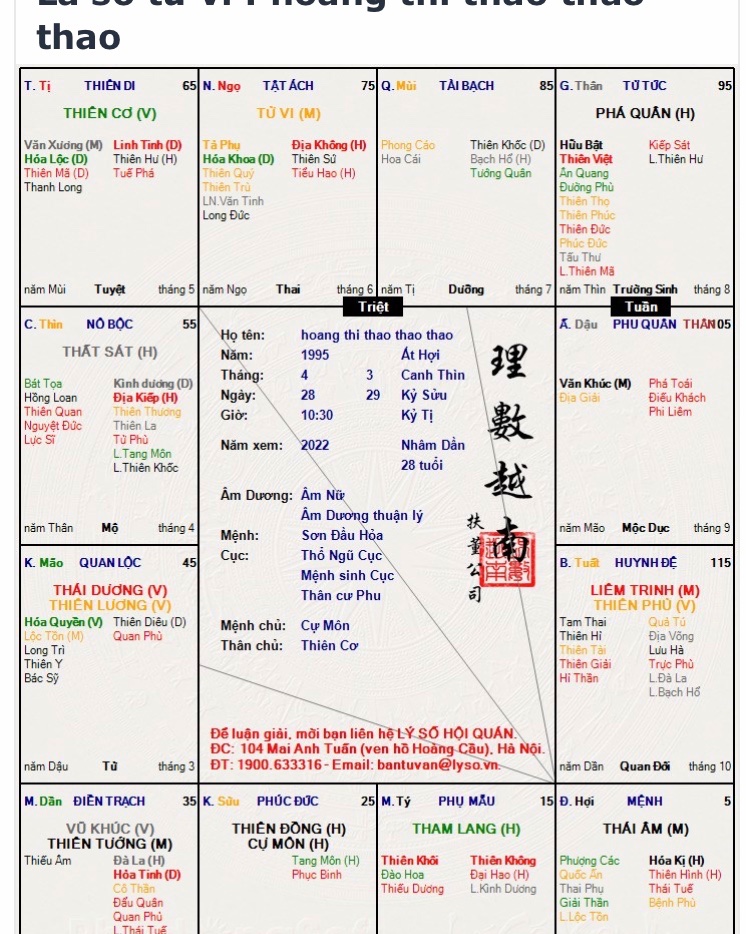 thao
T. Tị THIÊN DI 65
THIÊN CƠ (V)
Văn Xương (M) Linh Tinh (D)
Hóa Lộc (D) Thiên Hư (H)
Thiên Mã (D) Tuế Phá
Thanh Long
năm Mùi Tuyệt tháng 5
N. Ngọ TẬT ÁCH 75
TỬ VI (M)
Tả Phụ Địa Không (H)
Hóa Khoa (D) Thiên Sứ
Thiên Quý Tiểu Hao (H)
Thiên Trù
LN.Văn Tinh
Long Đức
năm Ngọ Thai tháng 6
Q. Mùi TÀI BẠCH 85
Phong Cáo Thiên Khốc (D)
Hoa Cái Bạch Hổ (H)
Tướng Quân
năm Tị Dưỡng tháng 7
G. Thân TỬ TỨC 95
PHÁ QUÂN (H)
Hữu Bật Kiếp Sát
Thiên Việt L.Thiên Hư
Ân Quang
Đường Phù
Thiên Thọ
Thiên Phúc
Thiên Đức
Phúc Đức
Tấu Thư
L.Thiên Mã
năm Thìn Trường Sinh tháng 8
Triệt
Tuần
C. Thìn NÔ BỘC 55
THẤT SÁT (H)
Bát Tọa Kình dương (D)
Hồng Loan Địa Kiếp (H)
Thiên Quan Thiên Thương
Nguyệt Đức Thiên La
Lực Sĩ Tử Phù
L.Tang Môn
L.Thiên Khốc
năm Thân Mộ tháng 4
Họ tên: hoang thi thao thao thao
Năm: 1995 Ất Hợi
Tháng: 4 3 Canh Thìn
Ngày: 28 29 Kỷ Sửu
Giờ: 10:30 Kỷ Tị
Năm xem: 2022 Nhâm Dần
28 tuổi
Âm Dương: Âm Nữ
Âm Dương thuận lý
Mệnh: Sơn Đầu Hỏa
Cục: Thổ Ngũ Cục
Mệnh sinh Cục
Thân cư Phu
Mệnh chủ: Cự Môn
Thân chủ: Thiên Cơ
理數越南
扶董公司
Để luận giải, mời bạn liên hệ LÝ SỐ HỘI QUÁN.
ĐC: 104 Mai Anh Tuấn (ven hồ Hoàng Cầu), Hà Nội.
ĐT: 1900.633316 - Email: bantuvan@lyso.vn.
Ấ. Dậu PHU QUÂN THÂN 05
Văn Khúc (M) Phá Toái
Địa Giải Điếu Khách
Phi Liêm
năm Mão Mộc Dục tháng 9
K. Mão QUAN LỘC 45
THÁI DƯƠNG (V)
THIÊN LƯƠNG (V)
Hóa Quyền (V) Thiên Diêu (D)
Lộc Tồn (M) Quan Phù
Long Trì
Thiên Y
Bác Sỹ
năm Dậu Tử tháng 3
B. Tuất HUYNH ĐỆ 115
LIÊM TRINH (M)
THIÊN PHỦ (V)
Tam Thai Quả Tú
Thiên Hỉ Địa Võng
Thiên Tài Lưu Hà
Thiên Giải Trực Phù
Hỉ Thần L.Đà La
L.Bạch Hổ
năm Dần Quan Đới tháng 10
M. Dần ĐIỀN TRẠCH 35
VŨ KHÚC (V)
THIÊN TƯỚNG (M)
Thiếu Âm Đà La (H)
Hỏa Tinh (D)
Cô Thần
Đẩu Quân
Quan Phủ
L.Thái Tuế
K. Sửu PHÚC ĐỨC 25
THIÊN ĐỒNG (H)
CỰ MÔN (H)
Tang Môn (H)
Phục Binh
M. Tý PHỤ MẪU 15
THAM LANG (H)
Thiên Khôi Thiên Không
Đào Hoa Đại Hao (H)
Thiếu Dương L.Kình Dương
Đ. Hợi MỆNH 5
THÁI ÂM (M)
Phượng Các Hóa Kị (H)
Quốc Ấn Thiên Hình (H)
Thai Phụ Thái Tuế
Giải Thần Bệnh Phù
L.Lộc Tồn